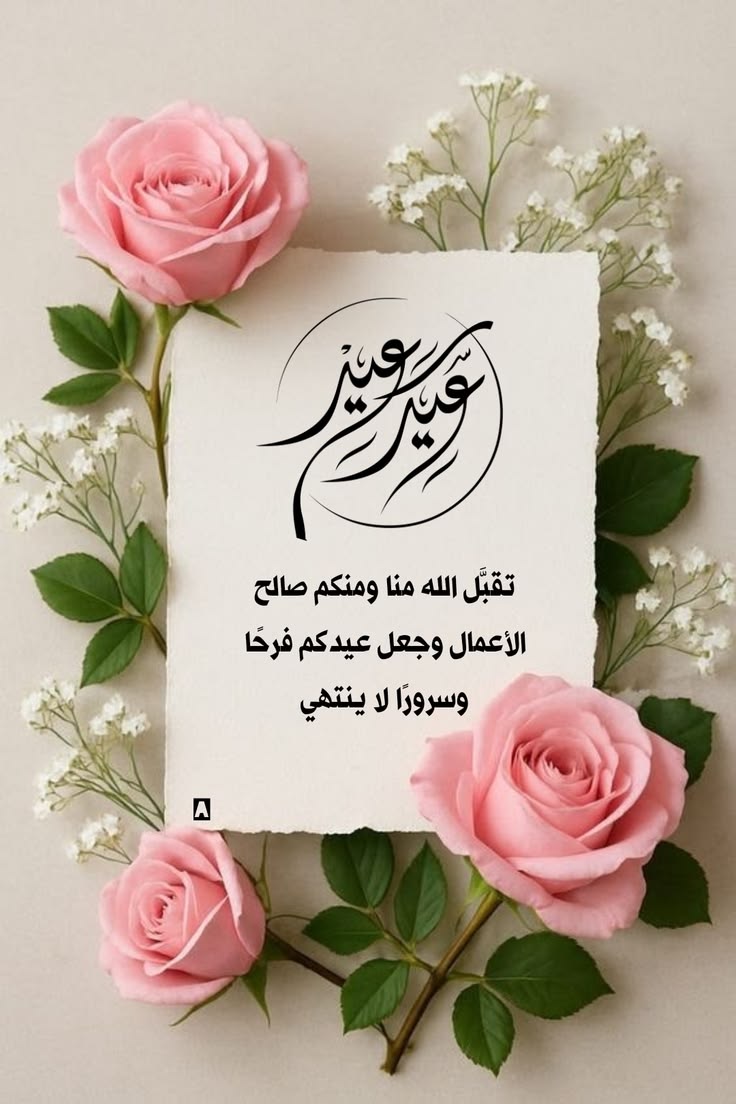 عيد سعيد
تقبَّل الله منا ومنكم صالح
الأعمال وجعل عيدكم فرحًا
وسرورًا لا ينتهي
A